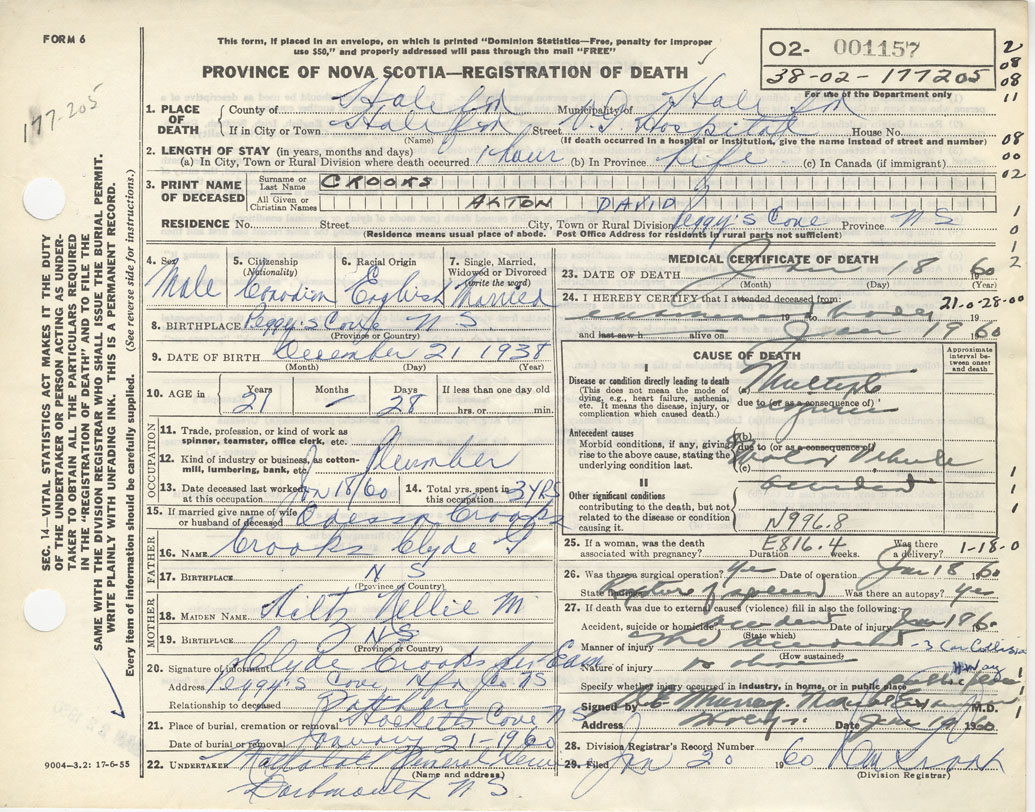 FORM 6
This form, if placed in an envelope, on which is printed "Dominion Statistics—Free, penalty for improper
use $50," and properly addressed will pass through the mail "FREE"
PROVINCE OF NOVA SCOTIA—REGISTRATION OF DEATH
O2- 001157
38-02-177205
For use of the Department only
177-205
2
08
08
11
08
00
02
1
0
1
2
SEC. 14—VITAL STATISTICS ACT MAKES IT THE DUTY
OF THE UNDERTAKER OR PERSON ACTING AS UNDER-
TAKER TO OBTAIN ALL THE PARTICULARS REQUIRED
IN THE "REGISTRATION OF DEATH" AND FILE THE
SAME WITH THE DIVISION REGISTRAR WHO SHALL ISSUE THE BURIAL PERMIT.
WRITE PLAINLY WITH UNFADING INK. THIS IS A PERMANENT RECORD.
Every item of information should be carefully supplied. (See reverse side for instructions.)
1. PLACE OF DEATH
County of Halifax Municipality of Halifax
If in City or Town Halifax Street V.G. Hospital House No.
(Name) (If death occurred in a hospital or institution, give the name instead of street and number)
2. LENGTH OF STAY (in years, months and days)
(a) In City, Town or Rural Division where death occurred 1 hour (b) In Province Life (c) In Canada (if immigrant)
3. PRINT NAME OF DECEASED
Surname or Last Name CROOKS
All Given or Christian Names AXTON DAVID
RESIDENCE No. Street City, Town or Rural Division Peggy's Cove Province N S
(Residence means usual place of abode. Post Office Address for residents in rural parts not sufficient)
4. Sex Male
5. Citizenship (Nationality) Canadian
6. Racial Origin English
7. Single, Married, Widowed or Divorced (write the word) Married
8. BIRTHPLACE Peggy's Cove N S.
(Province or Country)
9. DATE OF BIRTH December 21 1938
(Month) (Day) (Year)
10. AGE in Years 21 Months - Days 28 If less than one day old hrs. or min.
OCCUPATION
11. Trade, profession, or kind of work as spinner, teamster, office clerk, etc.
12. Kind of industry or business, as cotton-mill, lumbering, bank, etc. Plumber
13. Date deceased last worked at this occupation Jan 18/60
14. Total yrs. spent in this occupation 3 YRS
15. If married give name of wife or husband of deceased Odessa Crooks
FATHER
16. NAME Crooks Clyde G
17. BIRTHPLACE N S
(Province or Country)
MOTHER
18. MAIDEN NAME Hiltz Nellie M.
19. BIRTHPLACE N.S.
(Province or Country)
20. Signature of informant Clyde Crooks per
Address Peggy's Cove Hfx Co NS
Relationship to deceased Father
21. Place of burial, cremation or removal Hacketts Cove N S
Date of burial or removal January 21-1960
22. UNDERTAKER
(Name and address)
Dartmouth N S.
9004-3.2: 17-6-55
MEDICAL CERTIFICATE OF DEATH
23. DATE OF DEATH Jan 18 1960
(Month) (Day) (Year)
24. I HEREBY CERTIFY that I attended deceased from: 21-0-28-00
19 to 19
and last saw h alive on Jan 19 1960
CAUSE OF DEATH
Approximate interval between onset and death
I
Disease or condition directly leading to death
(This does not mean the mode of dying, e.g., heart failure, asthenia, etc. It means the disease, injury, or complication which caused death.)
(a) Multiple
due to (or as a consequence of)
injuries
Antecedent causes
Morbid conditions, if any, giving rise to the above cause, stating the underlying condition last.
(b)
due to (or as a consequence of)
Motor Vehicle
(c)
accident
II
Other significant conditions
contributing to the death, but not related to the disease or condition causing it.
N996.8
E816.4
25. If a woman, was the death associated with pregnancy? Duration weeks. Was there a delivery? 1-18-0
26. Was there a surgical operation? Yes Date of operation Jan 18 1960
State findings Rupture of spleen Was there an autopsy? yes
27. If death was due to external causes (violence) fill in also the following:
Accident, suicide or homicide accident Date of injury Jan 18 60
(State which)
Manner of injury - 3 Car Collision
(How sustained)
Nature of injury as above
Hway
Specify whether injury occurred in industry, in home, or in public place public place
Signed by M.D.
Address Date Jan 19 1960
28. Division Registrar's Record Number
29. Filed Jan 20 1960
(Division Registrar)